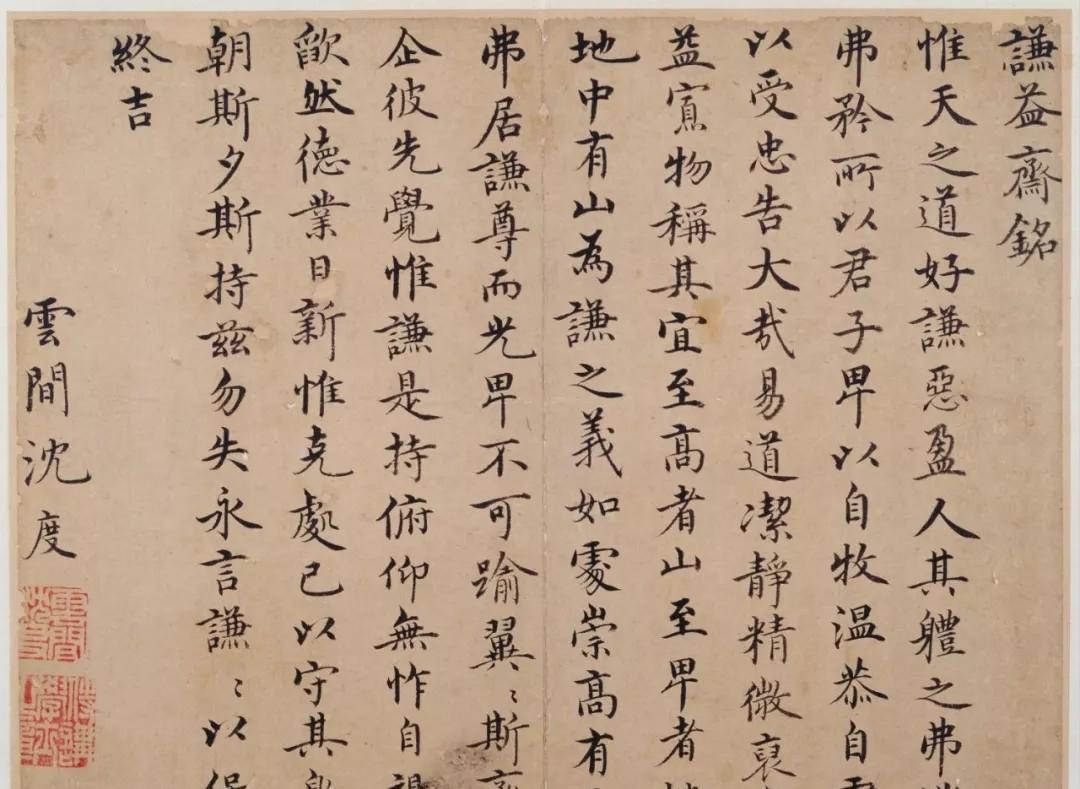 謙益齋銘
惟天之道好謙惡盈人其體之弗
弗矜所以君子卑以自牧温恭自
以受忠告大哉易道潔靜精微裒
益寡物稱其宜至高者山至卑者
地中有山為謙之義如處崇高有
弗居謙尊而光卑不可踰翼〻斯
企彼先覺惟謙是持俯仰無怍自視
歉然德業日新惟克處己以守其
朝斯夕斯持茲勿失永言謙〻以保
終吉
雲間沈度